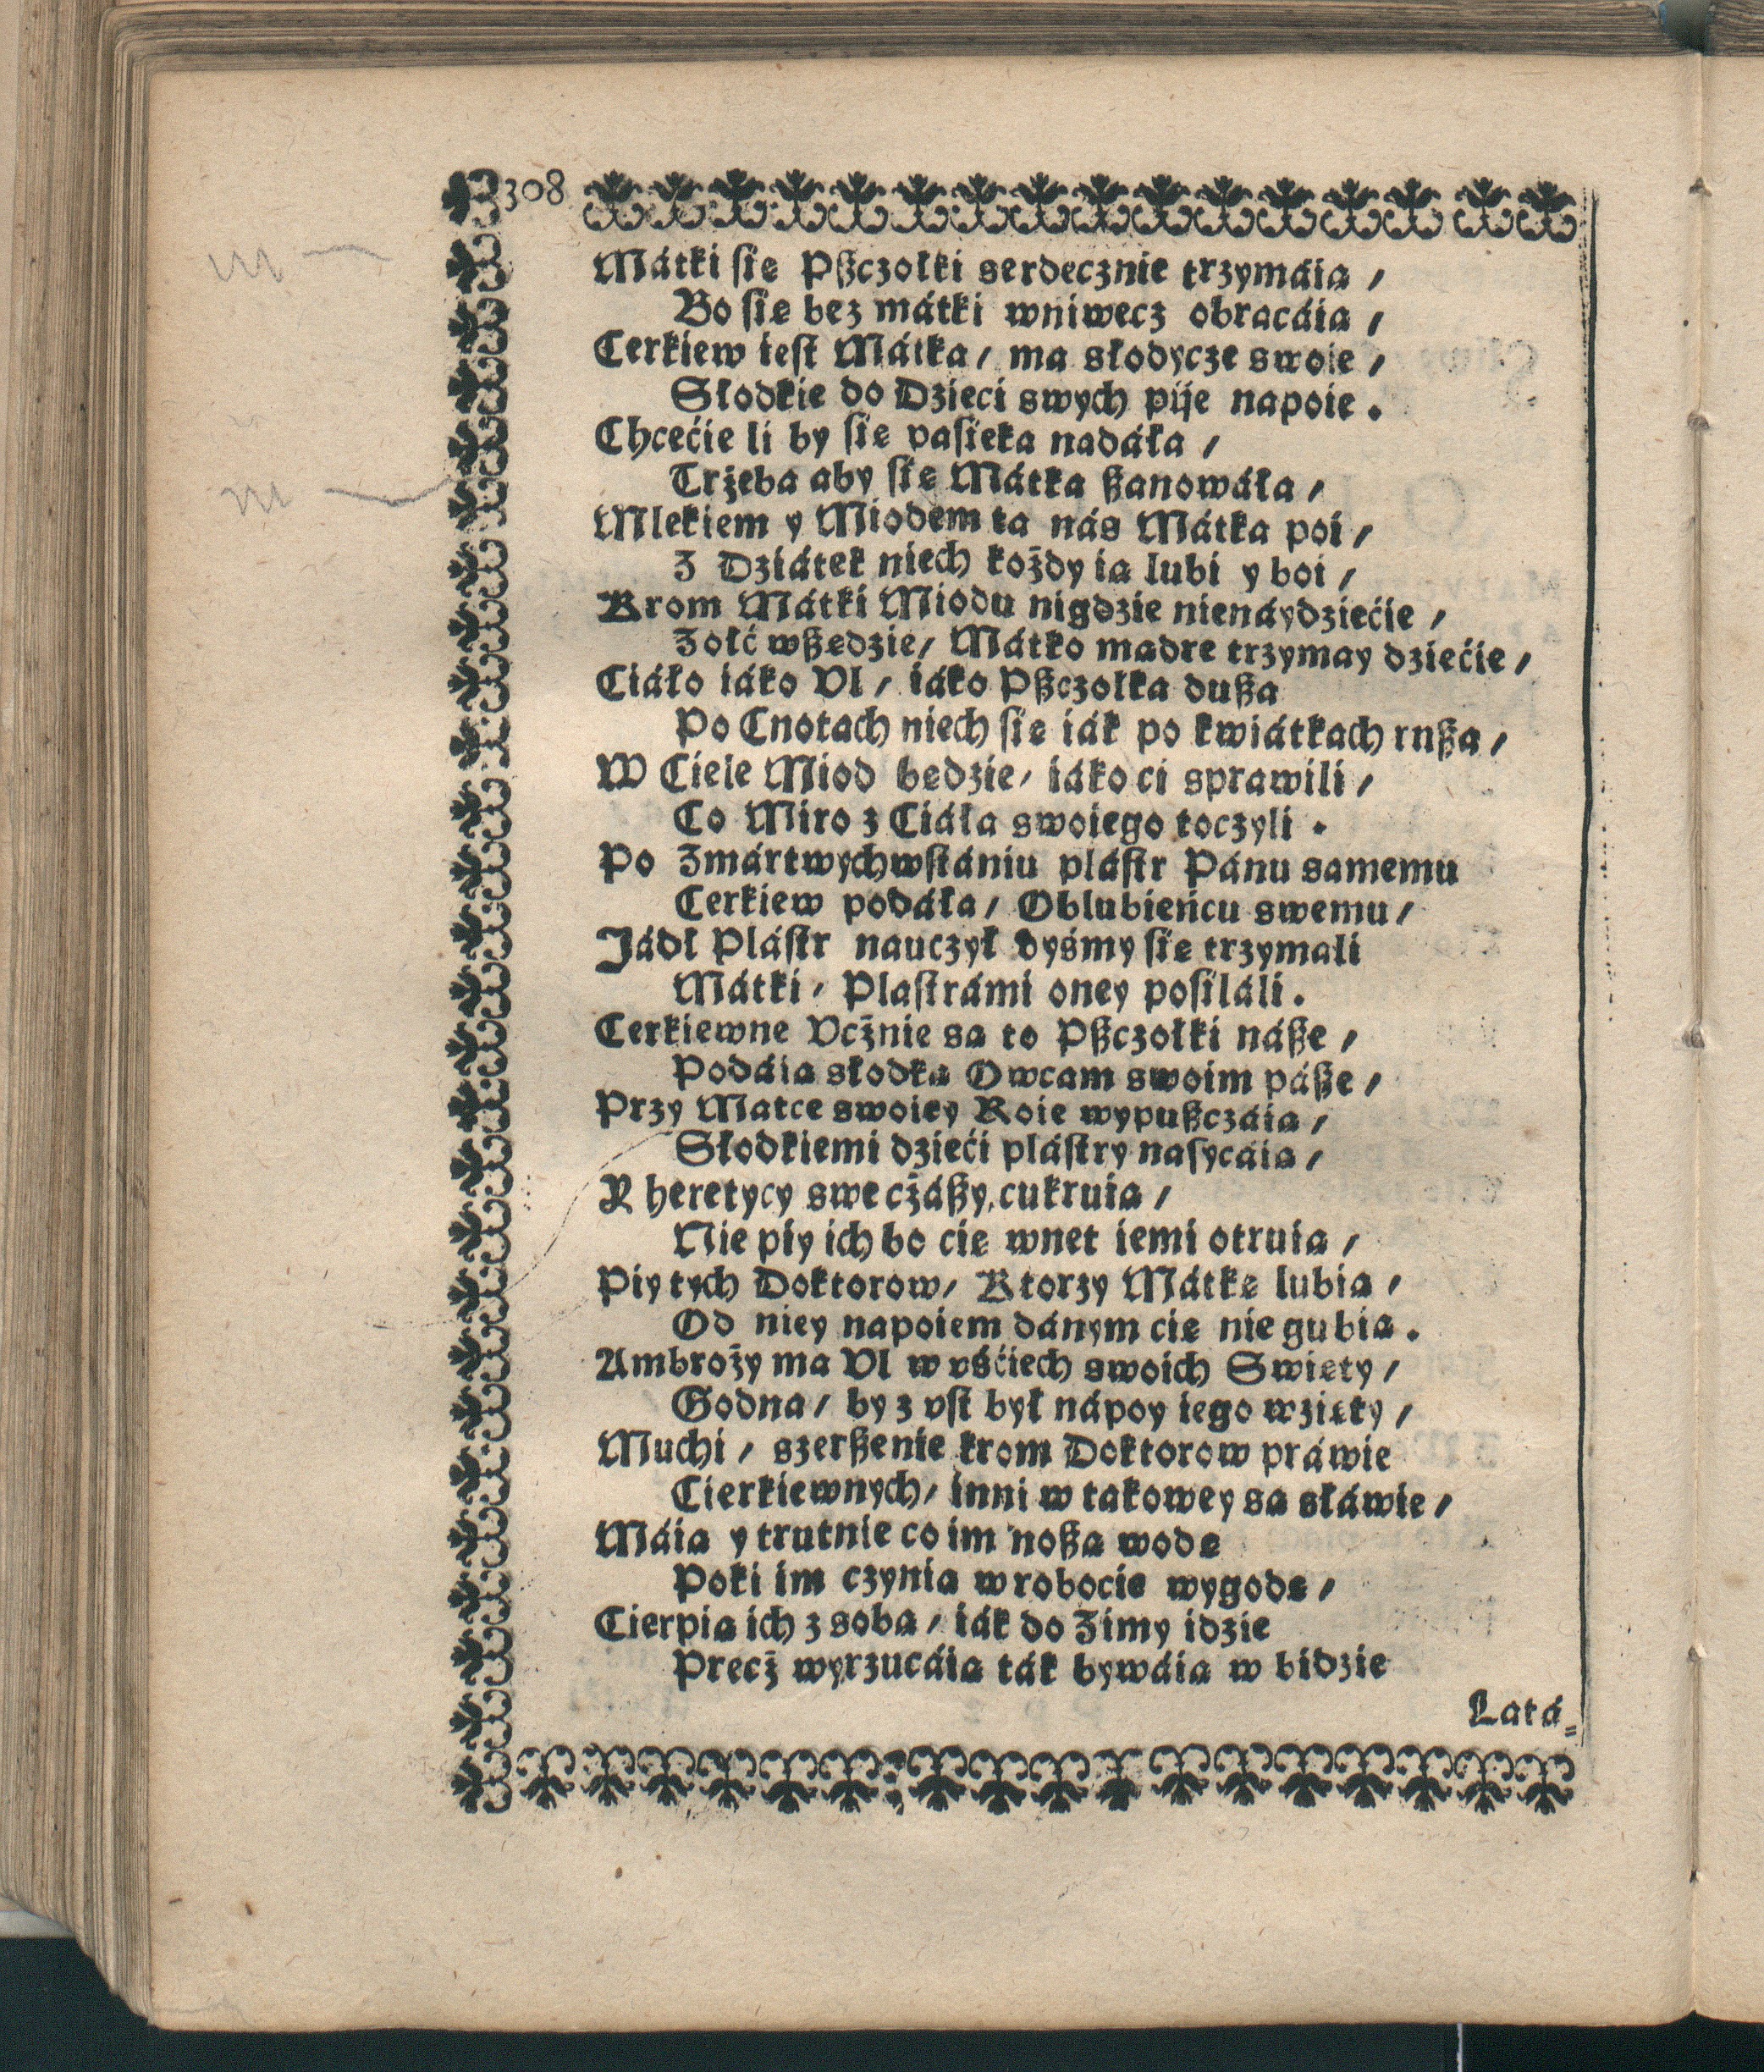 308
Mátki ſię Pßczołki serdecznie trzymáią /
Bo ſię bez mátki wniwecz obracáią /
Cerkiew ieſt Mátka / ma słodycze swoie /
Słodkie do Dzieci swych pije napoie .
Chcećie li by ſię pasieka nadáła /
Trżeba aby ſię Mátka ßanowáła /
Mlekiem y Miodem ta nás Mátka poi /
Z Dziátek niech kożdy ią lubi y boi /
Krom Mátki Miodu nigdzie nienáydziećie /
Zołć wßędzie / Mátko mądre trzymay dziećie /
Ciáło iáko Vl / iáko Pßczołka dußa
Po Cnotach niech ſię iák po kwiátkach rußa /
W Ciele Miod będzie / iáko ci sprawili /
Co Miro z Ciáła swoiego toczyli .
Po Zmártwychwſtániu pláſtr Pánu samemu
Cerkiew podáła / Oblubieńcu swemu /
Jádł Pláſtr nauczył byśmy ſię trzymali
Mátki / Plaſtrámi oney poſiláli .
Cerkiewne Vcżnie są to Pßczołki náße /
Podáią słodką Owcam swoim páße /
Przy Matce swoiey Roie wypußczáią /
Słodkiemi dzieći pláſtry naſycáią /
Y heretycy swe cżáßy cukruią /
Nie piy ich bo cię wnet iemi otruią /
Piy tych Doktorow / Ktorzy Mátkę lubią /
Od niey napoiem dánym cię nie gubią .
Ambroży ma Vl w vśćiech swoich Swięty /
Godna / by z vſt był nápoy iego wzięty /
Muchi / szerßenie krom Doktorow práwie
Cierkiewnych / inni w takowey są słáwie /
Máią y trutnie co im noßą wodę
Poki im czynią w robocie wygodę /
Cierpią ich z sobą / iák do Zimy idzie
Precż wyrzucáią ták bywáią w bidzie
Latá=